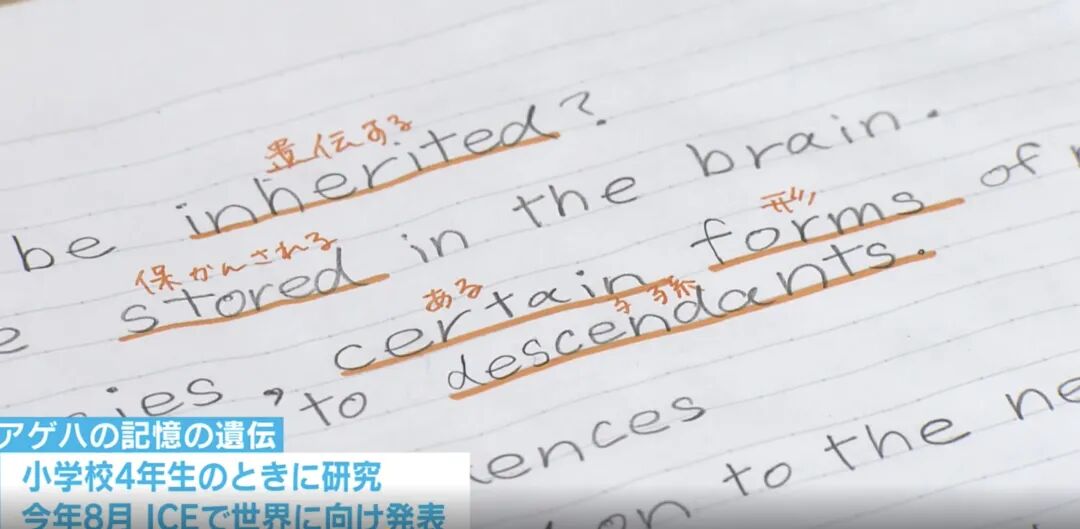 遺伝する
be inherited?
保かんされる
e stored in the brain.
ある 形
ies, certain forms of
子孫
to descendants.
ences
on to the ne
アゲハの記憶の遺伝
小学校4年生のときに研究
今年8月 ICEで世界に向け発表